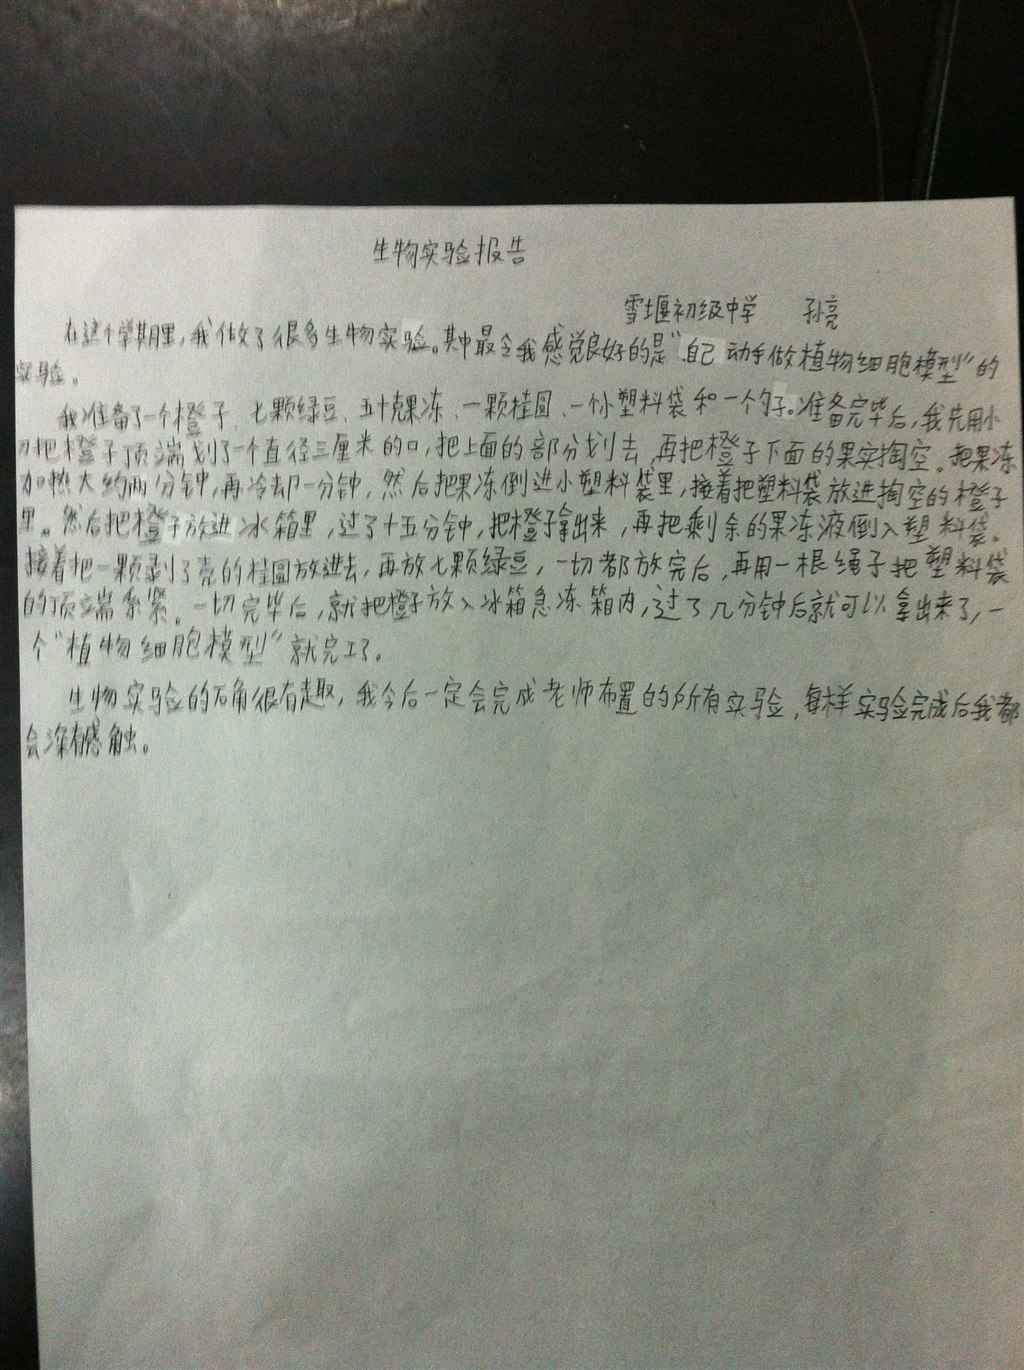 生物实验报告
雪堰初级中学 孙亮
在这个学期里,我做了很多生物实验。其中最令我感觉良好的是"自己动手做植物细胞模型"的
实验。
我准备了一个橙子、七颗绿豆、五十克果冻、一颗桂圆、一个小塑料袋和一个勺子。准备完毕后,我先用小
刀把橙子顶端划了一个直径三厘米的口,把上面的部分划去,再把橙子下面的果实掏空。把果冻
加热大约两分钟,再冷却一分钟,然后把果冻倒进小塑料袋里,接着把塑料袋放进掏空的橙子
里。然后把橙子放进冰箱里,过了十五分钟,把橙子拿出来,再把剩余的果冻液倒入塑料袋。
接着把一颗剥了壳的桂圆放进去,再放七颗绿豆,一切都放完后,再用一根绳子把塑料袋
的顶端系紧。一切完毕后,就把橙子放入冰箱急冻箱内,过了几分钟后就可以拿出来了,一
个"植物细胞模型"就完工了。
生物实验的确很有趣,我今后一定会完成老师布置的所有实验,每样实验完成后我都
会深有感触。